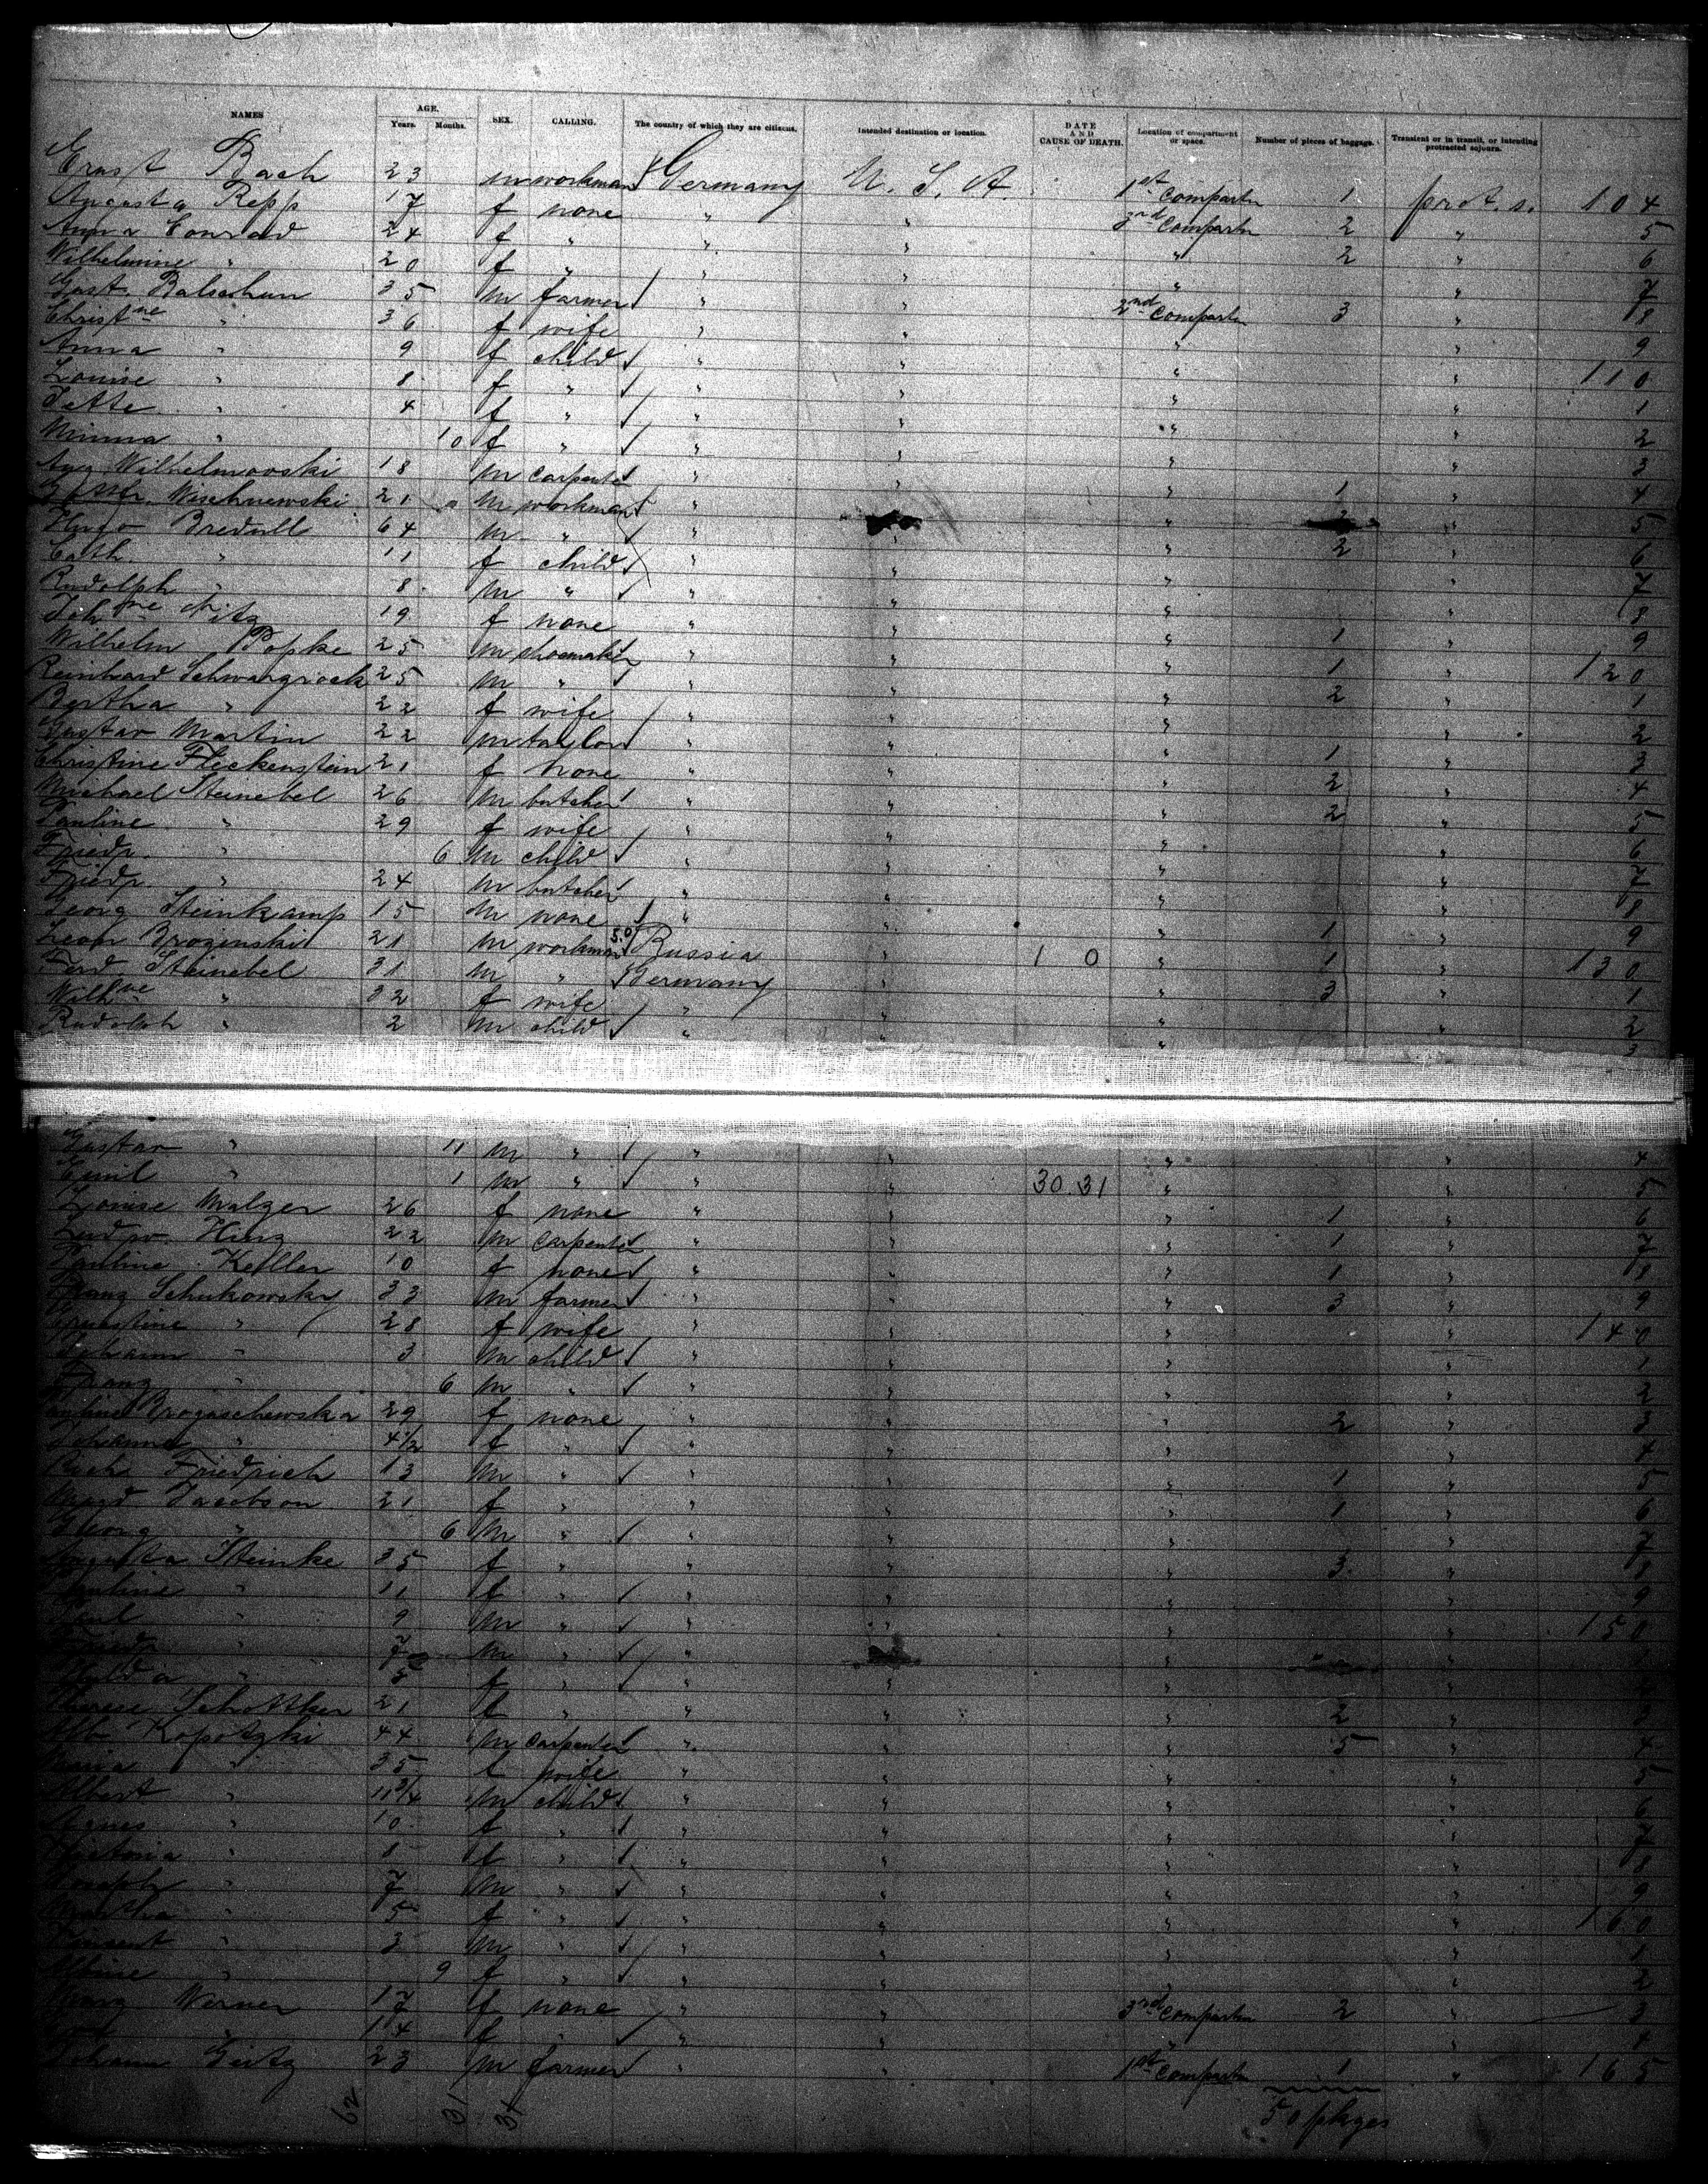 NAMES AGE. Years. Months. SEX. CALLING. The country of which they are citizens. Intended destination or location. DATE AND CAUSE OF DEATH. Location of compartment or space. Number of pieces of baggage. Transient or in transit, or intending protracted sojourn.
Ernst Bach 23 m workman Germany U. S. A. 1st Compartm 1 prot. s. 104
Augusta Repp 17 f none " " Compartm 2 " 5
Anna Conrad 24 f " " " " 2 " 6
Wilhelmine " 20 f " " " " " 7
Gust. Balschun 35 m farmer " " 2nd Compartm 3 " 8
Christne " 36 f wife " " " " 9
Anna " 9 f child " " " " 110
Louise " 8 f " " " " " 1
Jette " 4 f " " " " " 2
Minna " 10 f " " " " " 3
Aug Wilhelmowski 18 m carpenter " " " 1 " 4
Wischnewski 21 m workman " " " " 5
Hugo Bredull 64 m " " " " 2 " 6
Cath. " 11 f child " " " " 7
Rudolph " 8 m " " " " " 8
Johne Nitz 19 f none " " " 1 " 9
Wilhelm Popke 25 m shoemaker " " " 1 " 120
Reinhard Schwarzrock 25 m " " " " 2 " 1
Bertha " 22 f wife " " " " 2
Gustav Martin 22 m tailor " " " 1 " 3
Christine Fleckenstein 21 f none " " " 2 " 4
Michael Steinebel 26 m butcher " " " 2 " 5
Pauline " 29 f wife " " " " 6
Friedr. " 6 m child " " " " 7
Friedr. " 24 m butcher " " " " 8
Georg Steinkamp 15 m none " " " 1 " 9
Leon Brozinski 21 m workman 5.0 Russia " 1 0 " 1 " 130
Ferd. Steinebel 31 m " Germany " " 3 " 1
Wilhne " 32 f wife " " " " 2
Rudolph " 2 m child " " " " 3
Gustav " 11 m " " " " " 4
Emil " 1 m " " " 30.31 " " 5
Louise Malzer 26 f none " " " 1 " 6
Ludw. Hinz 22 m carpenter " " " 1 " 7
Pauline Keller 10 f none " " " 1 " 8
Franz Schukowsky 33 m farmer " " " 3 " 9
Ernestine " 28 f wife " " " " 140
Johann " 3 m child " " " " 1
Franz " 6 m " " " " " 2
Pauline Brozaschewska 29 f none " " " 2 " 3
Johanna " 4 1/2 f " " " " " 4
Friedrich 13 m " " " " 1 " 5
Jacobson 21 f " " " " 1 " 6
Georg " 6 m " " " " " 7
Augusta Steinke 35 f " " " " 3 " 8
Pauline " 11 f " " " " " 9
" 9 m " " " " " 150
Friedr. " 7 m " " "
" 5 f " " " " "
Therese Schottker 21 f " " " " 2 " 3
Alb. Kopotzki 44 m carpenter " " " 5 " 4
Maria " 35 f wife " " " " 5
Albert " 11 3/4 m child " " " " 6
Agnes " 10 f " " " " " 7
Victoria " 8 f " " " " " 8
Joseph " 7 m " " " " " 9
Martha " 5 f " " " " " 160
Vincent " 3 m " " " " " 1
Albine " 9 f " " " " " 2
Werner 17 f none " " 3rd Compartm 2 " 3
" 14 f " " " " " 4
Johann Geitz 23 m farmer " " 1st Compartm 1 " 165
62 31 31 50 pkges